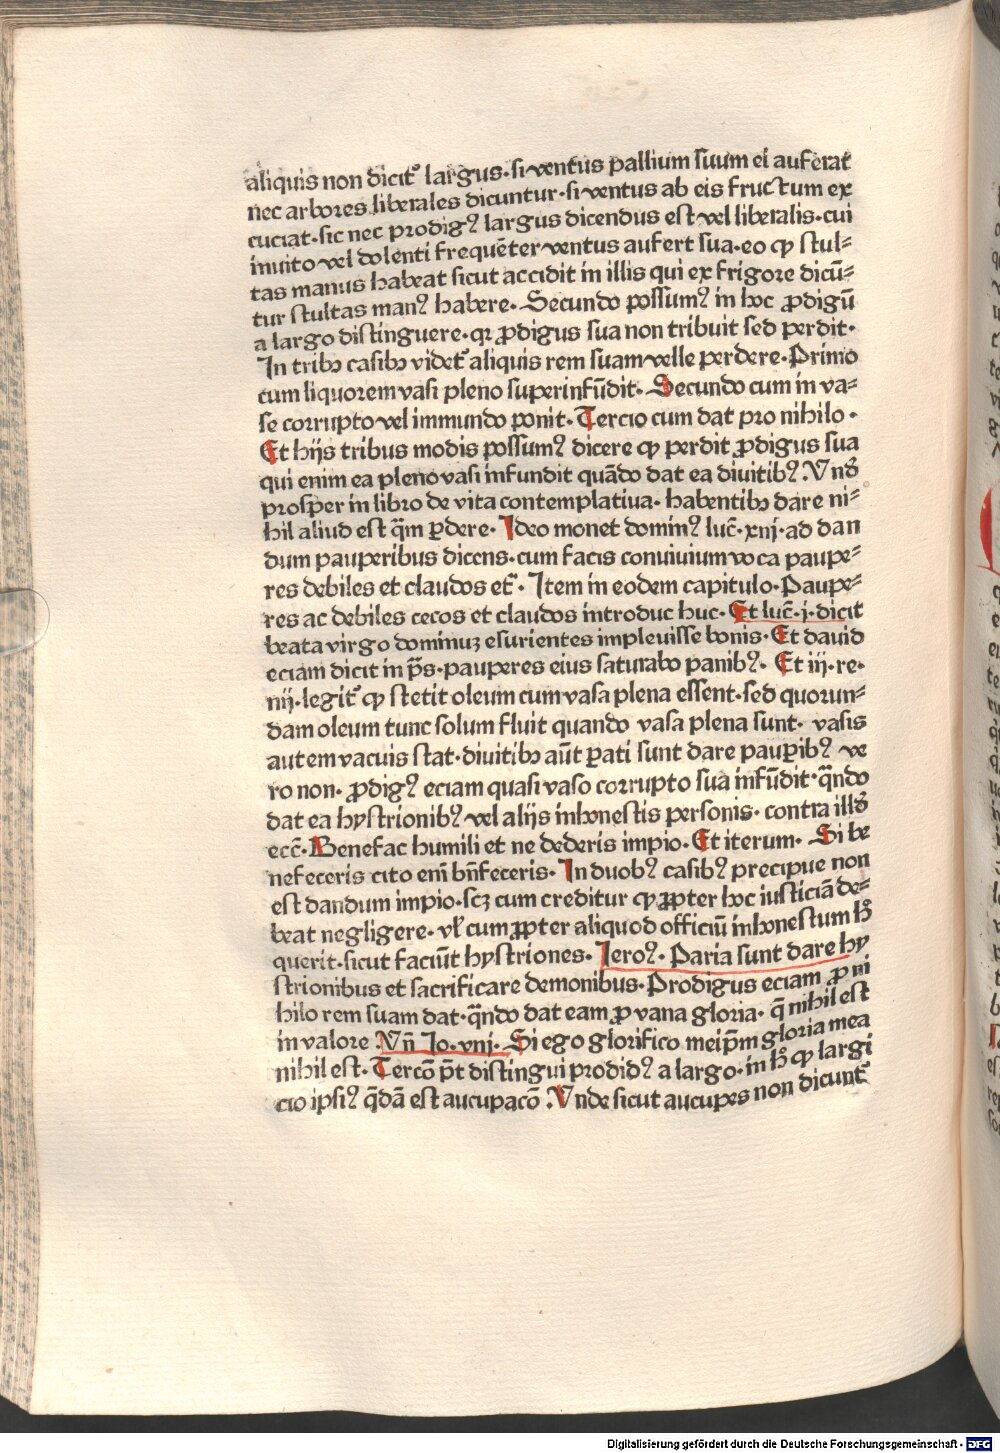 aliquis non dicit᷑ largus·si ventus pallium suum ei auferat
nec arbores liberales dicuntur·si ventus ab eis fructum ex
cuciat·sic nec prodigꝰ largus dicendus est vel liberalis·cui
inuito vel dolenti frequēter ventus aufert sua·eo ꝙ stul⸗
tas manus habeat sicut accidit in illis qui ex frigore dicū⸗
tur stultas manꝰ habere· Secundo possumꝰ in hoc ꝓdigū
a largo distinguere·qꝛ ꝓdigus sua non tribuit sed perdit·
In tribꝫ casibꝫ videt᷑ aliquis rem suam velle perdere·Primo
cum liquorem vasi pleno superinfūdit· Secundo cum in va⸗
se corrupto vel immundo ponit· Tercio cum dat pro nihilo·
Et hijs tribus modis possumꝰ dicere ꝙ perdit ꝓdigus sua
qui enim ea pleno vasi infundit quādo dat ea diuitibꝰ·Vnd̕
prosper in libro de vita contemplatiua· habentibꝫ dare ni⸗
hil aliud est q̄m ꝑdere· Ideo monet dominꝰ luc̄·xiij·ad dan
dum pauperibus dicens·cum facis conuiuium voca paupe⸗
res debiles et claudos etc̄· Item in eodem capitulo·Paupe⸗
res ac debiles cecos et claudos introduc huc· Et luc̄·j·dicit
beata virgo dominuꝫ esurientes impleuisse bonis· Et dauid
eciam dicit in p̄s·pauperes eius saturabo panibꝰ· Et iij·re·
iiij·legit᷑ ꝙ stetit oleum cum vasa plena essent·sed quorun⸗
dam oleum tunc solum fluit quando vasa plena sunt· vasis
autem vacuis stat·diuitibꝫ aūt ꝑati sunt dare pauꝑibꝰ ve
ro non· ꝓdigꝰ eciam quasi vaso corrupto sua infūdit·q̄ndo
dat ea hystrionibꝰ vel alijs inhonestis personis· contra illd̕
ecc̄· Benefac humili et ne dederis impio· Et iterum· Si be
nefeceris cito eni̅ bn̄feceris· In duobꝰ casibꝰ precipue non
est dandum impio·scꝫ cum creditur ꝙ ꝓpter hoc iusticiā de⸗
beat negligere· vl̕ cum ꝓpter aliquod officiū inhonestum h̕
querit·sicut faciūt hystriones· Jeroꝰ· Paria sunt dare hy
strionibus et sacrificare demonibus·Prodigus eciam ꝓ ni
hilo rem suam dat·q̄ndo dat eam ꝓ vana gloria· q̄ nihil est
in valore·Vn̄ Jo·viij· Si ego glorifico meip̄m gloria mea
nihil est· Tercō p̄t distingui prodidꝰ a largo·in h̕ ꝙ largi
cio ipsiꝰ q̄dā est aucupacō·Vnde sicut aucupes non dicunt᷑
Digitalisierung gefördert durch die Deutsche Forschungsgemeinschaft - DFG